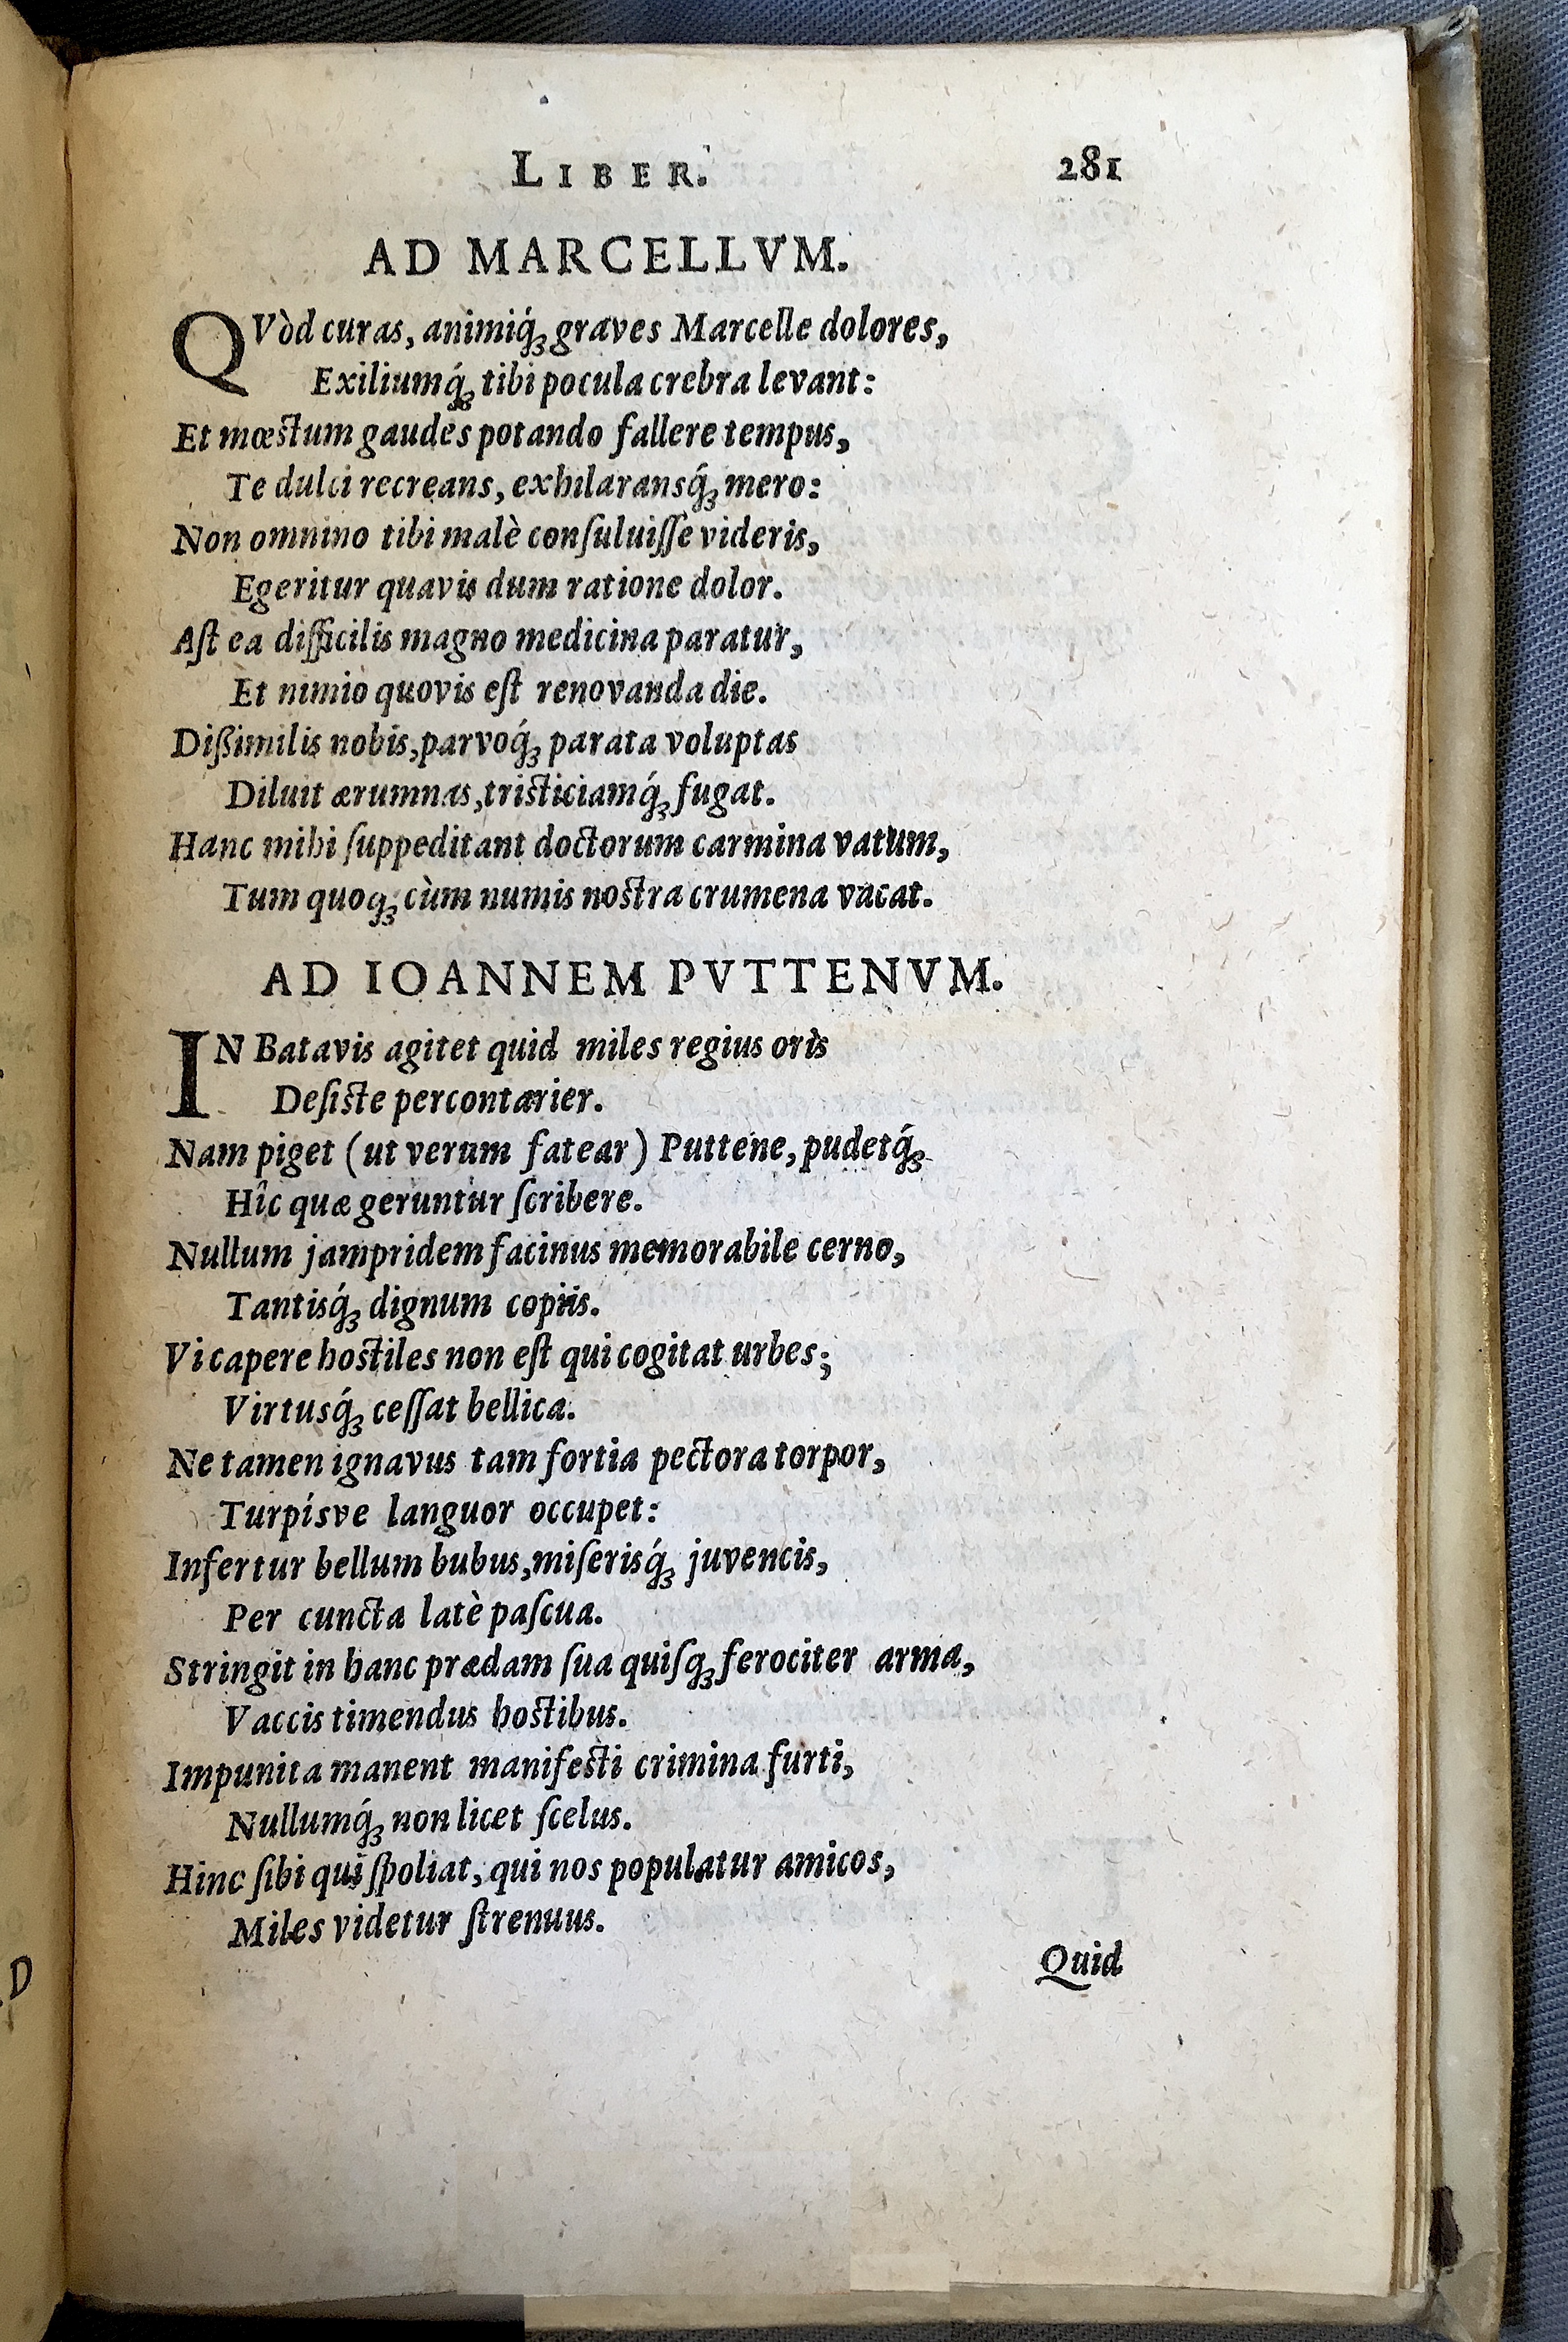 LIBER. 281
AD MARCELLVM.
QVòd curas, animiq́ꝫ graves Marcelle dolores,
Exiliumq́ꝫ tibi pocula crebra levant:
Et mœstum gaudes potando fallere tempus,
Te dulci recreans, exhilaransq́ꝫ mero:
Non omnino tibi malè conſuluiſſe videris,
Egeritur quavis dum ratione dolor.
Aſt ea difficilis magno medicina paratur,
Et nimio quovis eſt renovanda die.
Dißimilis nobis, parvoq́ꝫ parata voluptas
Diluit ærumnas, tristiciamq́ꝫ fugat.
Hanc mihi ſuppeditant doctorum carmina vatum,
Tum quoqꝫ cùm numis nostra crumena vacat.
AD IOANNEM PVTTENVM.
IN Batavis agitet quid miles regius oris
Deſiste percontarier.
Nam piget (ut verum fatear) Puttene, pudetq́ꝫ
Hîc quæ geruntur ſcribere.
Nullum jampridem facinus memorabile cerno,
Tantisq́ꝫ dignum copiis.
Vi capere hostiles non eſt qui cogitat urbes;
Virtusq́ꝫ ceſſat bellica.
Ne tamen ignavus tam fortia pectora torpor,
Turpísve languor occupet:
Infertur bellum bubus, miſerisq́ꝫ juvencis,
Per cuncta latè paſcua.
Stringit in hanc prædam ſua quiſqꝫ ferociter arma,
Vaccis timendus hostibus.
Impunita manent manifesti crimina furti,
Nullumq́ꝫ non licet ſcelus.
Hinc ſibi qui ſpoliat, qui nos populatur amicos,
Miles videtur ſtrenuus.
Quid